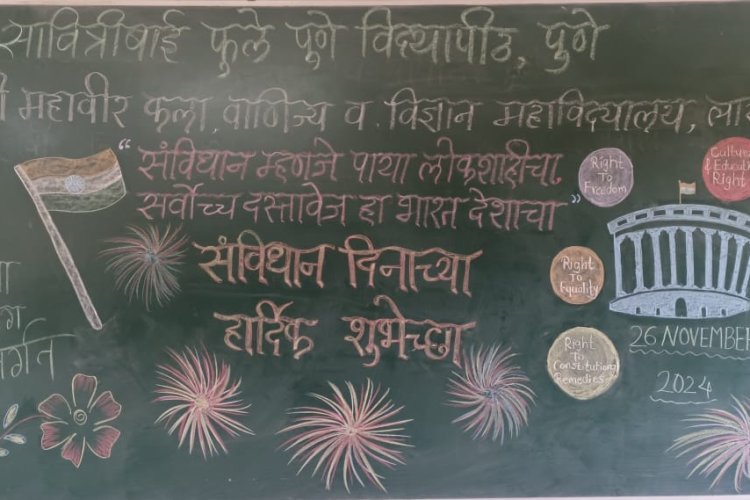 सावित्रीबाई फुले पुणे विद्यापीठ, पुणे
महावीर कला, वाणिज्य व विज्ञान महाविद्यालय,
“संविधान म्हणजे पाया लोकशाहीचा,
सर्वोच्च दस्तावेज हा भारत देशाचा”
संविधान दिनाच्या
हार्दिक शुभेच्छा
Right
To
Freedom
& Education
Right
Right
To
Equality
Right
To
Constitutional
Remedies
26 NOVEMBER
2024